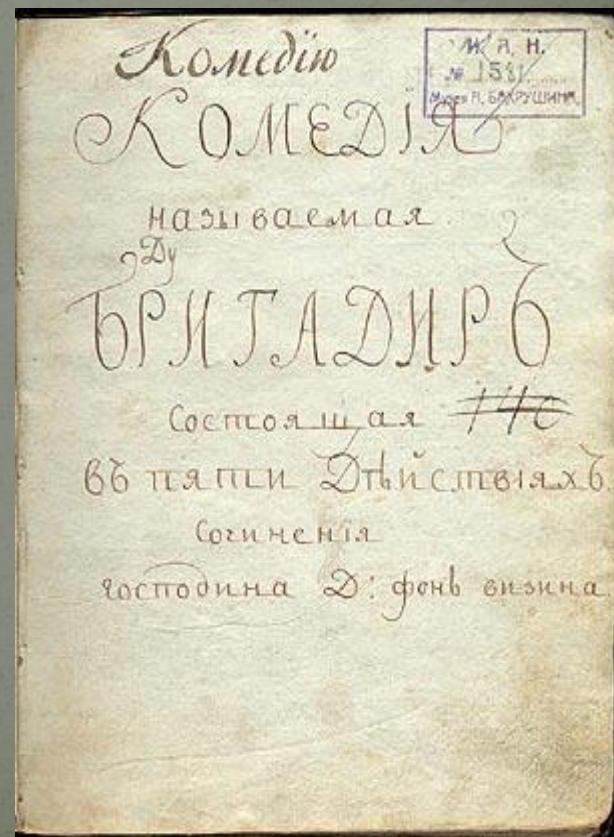 Комедію
И. А. Н.
№ 1581
Музея А. БАХРУШИНА
КОМЕДІЯ
называемая
Ду
БРИГАДИРЪ
Состоящая
въ пяти Дѣйствіяхъ
Сочиненія
господина Д: фонъ визина